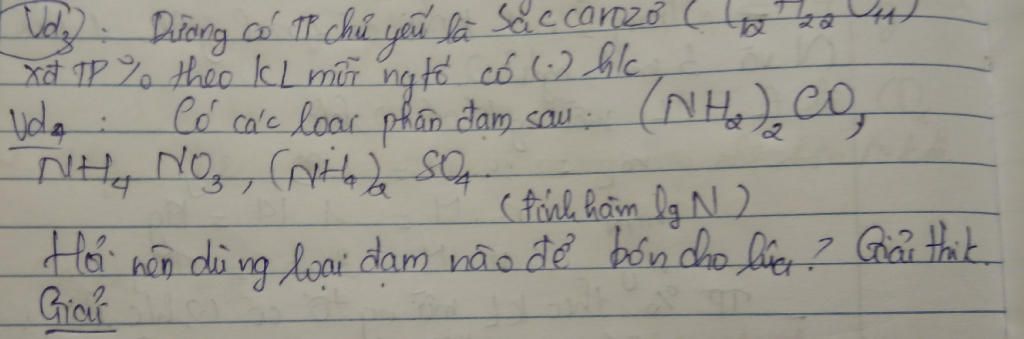 Vd3: Đường có TP chủ yếu là Saccarozơ (C12H22O11)
xđ TP % theo KL mỗi ngtố có (.) h/c
Vd4: Có các loại phân đạm sau: (NH2)2CO,
NH4NO3, (NH4)2SO4.
(tính hàm lg N)
Hỏi nên dùng loại đạm nào để bón cho lúa? Giải thik.
Giải